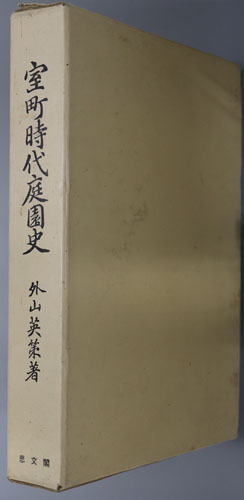 室町時代庭園史
外山英策著
思文閣